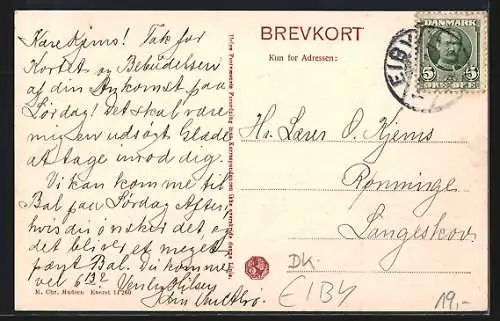 BREVKORT
Kun for Adressen:
DANMARK
5 5
ØRE ØRE
EIBY
Kære Hjems! Tak for
Kortet og Bebudelsen
af din Ankomst paa
Lørdag! Det skal være
mig en udsøgt Glæde
at tage imod dig.
Vi kan komme til
Bal paa Lørdag Aften,
hvis du ønsker det, og
det bliver et meget
pænt Bal. Vi kommer
vel 6
Venlig Hilsen
Hr. Lærer O. Hjems
Rønninge
Langeskov
DK.
EIBY
19,-
K. Chr. Madsen Eneret 14260